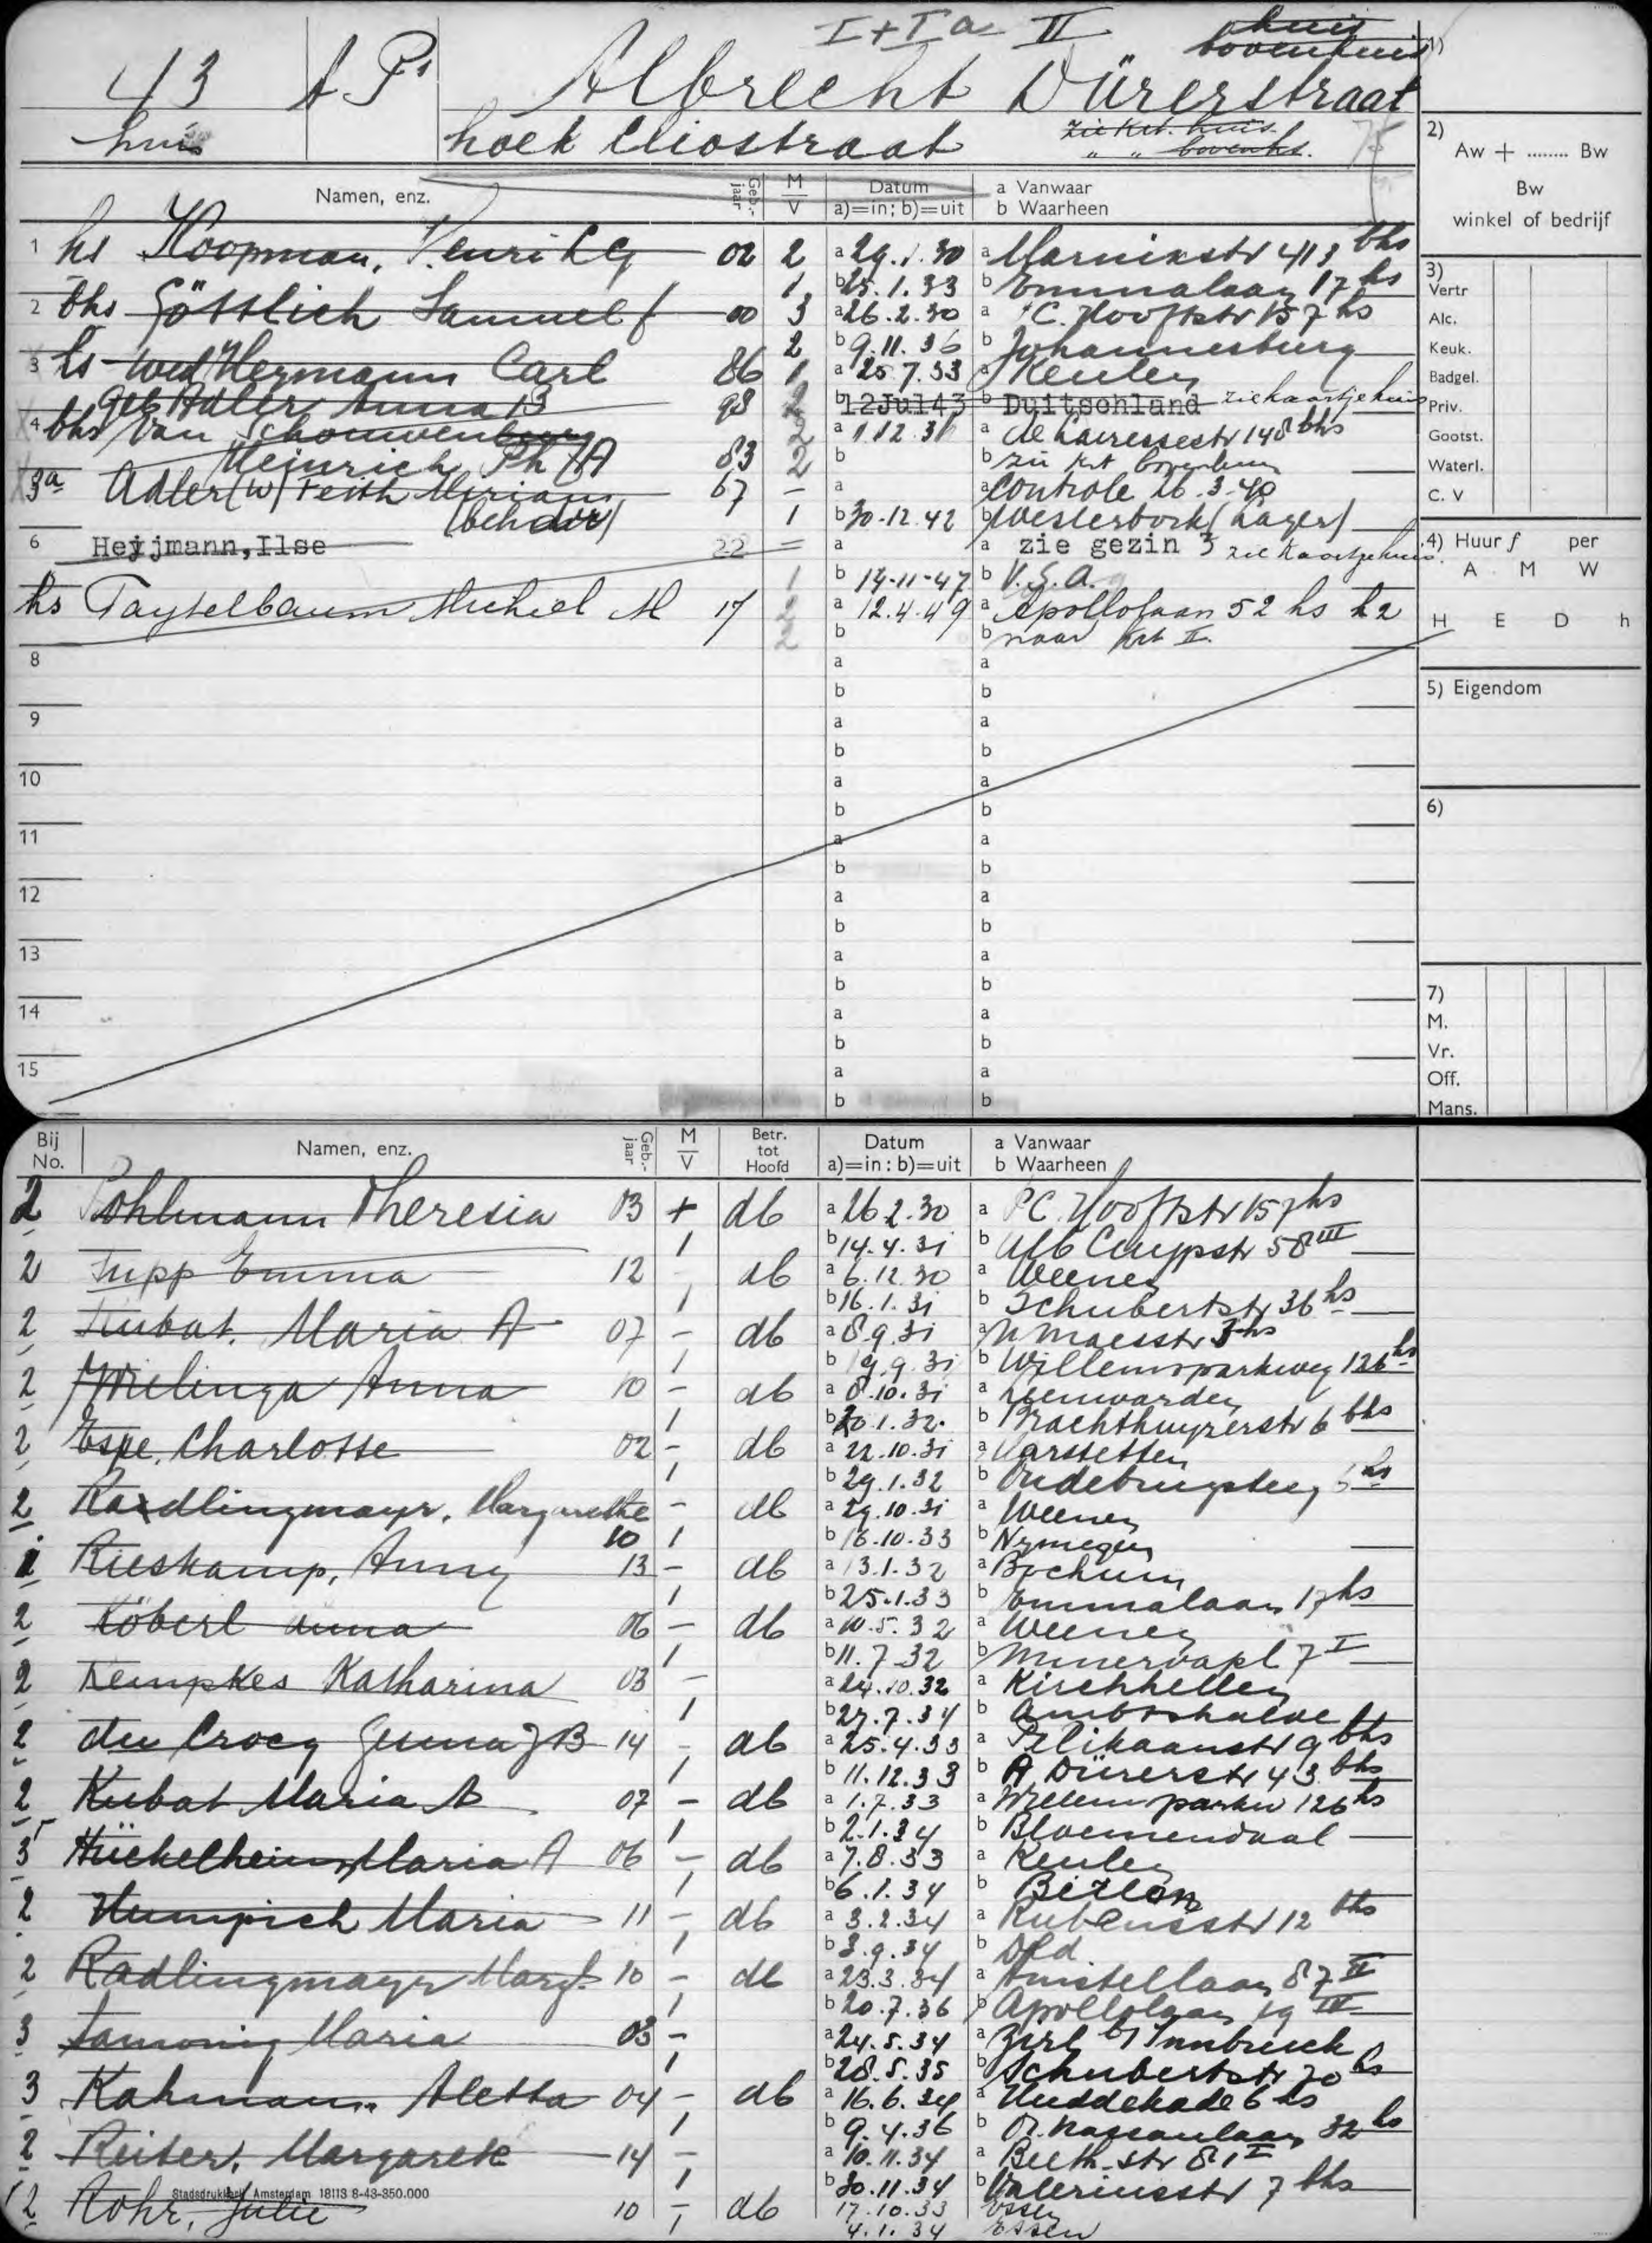 I + Ia II huis
bovenhuis
43 A P. Albrecht Dürerstraat
huis hoek Cliostraat zie krt. huis.
" " bovenhs. 75
Namen, enz. Geb.-jaar M V Datum a)=in; b)=uit a Vanwaar b Waarheen
1 hs Koopman, Henri L G 02 2 a 29.1.30 a Marnixstr 413 bhs
1 b 25.1.33 b Emmalaan 17 hs
2 bhs Göttlich Samuel f 00 3 a 26.2.30 a P.C. Hooftstr 157 hs
2 b 9.11.36 b Johannesburg
3 hs wed Hermann Carl 86 1 a 25.7.33 a Keulen
geb Adler Anna B 98 2 b 12Jul43 b Duitschland zie kaartje huis
4 bhs Van Schouwenburg 2 a 1.12.36 a de Lairessestr 148 bhs
Heinrich Ph A 83 2 b b zie krt bovenhuis
3a Adler (W) Feith Miriam 67 - a a Controle 26.3.40
(behdstr) 1 b 30.12.42 b Westerbork (Lager)
6 Heijmann, Ilse 22 = a a zie gezin 3 zie kaartje huis
1 b 14-11-47 b V.S.A.
hs Taytelbaum Michiel M 17 2 a 12.4.49 a Apollolaan 52 hs h2
2 b b naar krt II.
8 a a
b b
9 a a
b b
10 a a
b b
11 a a
b b
12 a a
b b
13 a a
b b
14 a a
b b
15 a a
b b
1)
2)
Aw + ........ Bw
Bw
winkel of bedrijf
3)
Vertr
Alc.
Keuk.
Badgel.
Priv.
Gootst.
Waterl.
C. V
4) Huur f per
A M W
H E D h
5) Eigendom
6)
7)
M.
Vr.
Off.
Mans.
Bij No. Namen, enz. Geb.-jaar M V Betr. tot Hoofd Datum a)=in : b)=uit a Vanwaar b Waarheen
2 Pohlmann Theresia 03 + db a 26.2.30 a P.C. Hooftstr 157 hs
1 b 14.4.31 b Alb Cuypstr 58 III
2 Tupp Emma 12 db a 6.12.30 a Weenen
1 b 16.1.31 b Schubertstr 36 hs
2 Kubat, Maria A 07 - db a 8.9.31 a N Maesstr 3 hs
1 b 19.9.31 b Willemsparkweg 126 hs
2 Wielinga Anna 10 - db a 8.10.31 a Leeuwarden
1 b 20.1.32 b Brachthuyzerstr 6 bhs
2 Espe, Charlotte 02 - db a 22.10.31 a Varstetten
1 b 29.1.32 b Oudebrugsteeg 5 hs
2 Radlingmayr, Margarethe - db a 29.10.31 a Weenen
10 1 b 16.10.33 b Nymegen
1 Rieskamp, Anny 13 - db a 13.1.32 a Bochum
1 b 25.1.33 b Emmalaan 17 hs
2 Köberl Anna 06 - db a 10.5.32 a Weenen
1 b 11.7.32 b Minervapl 7 I
2 Kempkes Katharina 03 - a 24.10.32 a Kirchhellen
1 b 27.7.34 b Ambtshalve
2 du Crocq Genna J B 14 - db a 25.4.33 a Pelikaanstr 9 bhs
1 b 11.12.33 b A Dürerstr 43 bhs
2 Kubat Maria A 07 - db a 1.7.33 a Willemsparkw 126 hs
1 b 2.1.34 b Bloemendaal
3 Hückelheim, Maria A 06 - db a 7.8.33 a Keulen
1 b 6.1.34 b Berlon
2 Humpich Maria 11 - db a 3.2.34 a Rubensstr 12 bhs
1 b 3.9.34 b Dld.
2 Radlingmayr Margt. 10 - db a 23.3.34 a Amstellaan 87 II
1 b 20.7.36 b Apollolaan 19 III
3 Tamonig Maria 03 - a 24.5.34 a Zirl b/ Innbruck
1 b 28.5.35 b Schubertstr 70 hs
3 Kahmann Aletta 04 - db a 16.6.34 a Huddekade 6 hs
1 b 9.4.36 b Or. Nassaulaan 32 hs
2 Reiter, Margarete 14 - a 10.11.34 a Beeth.str 81 I
1 b 30.11.34 b Valeriusstr 7 bhs
Stadsdrukkerij Amsterdam 18113 8-43-350.000
2 Rohr, Julie 10 - db 17.10.33 Essen
1 4.1.34 Essen